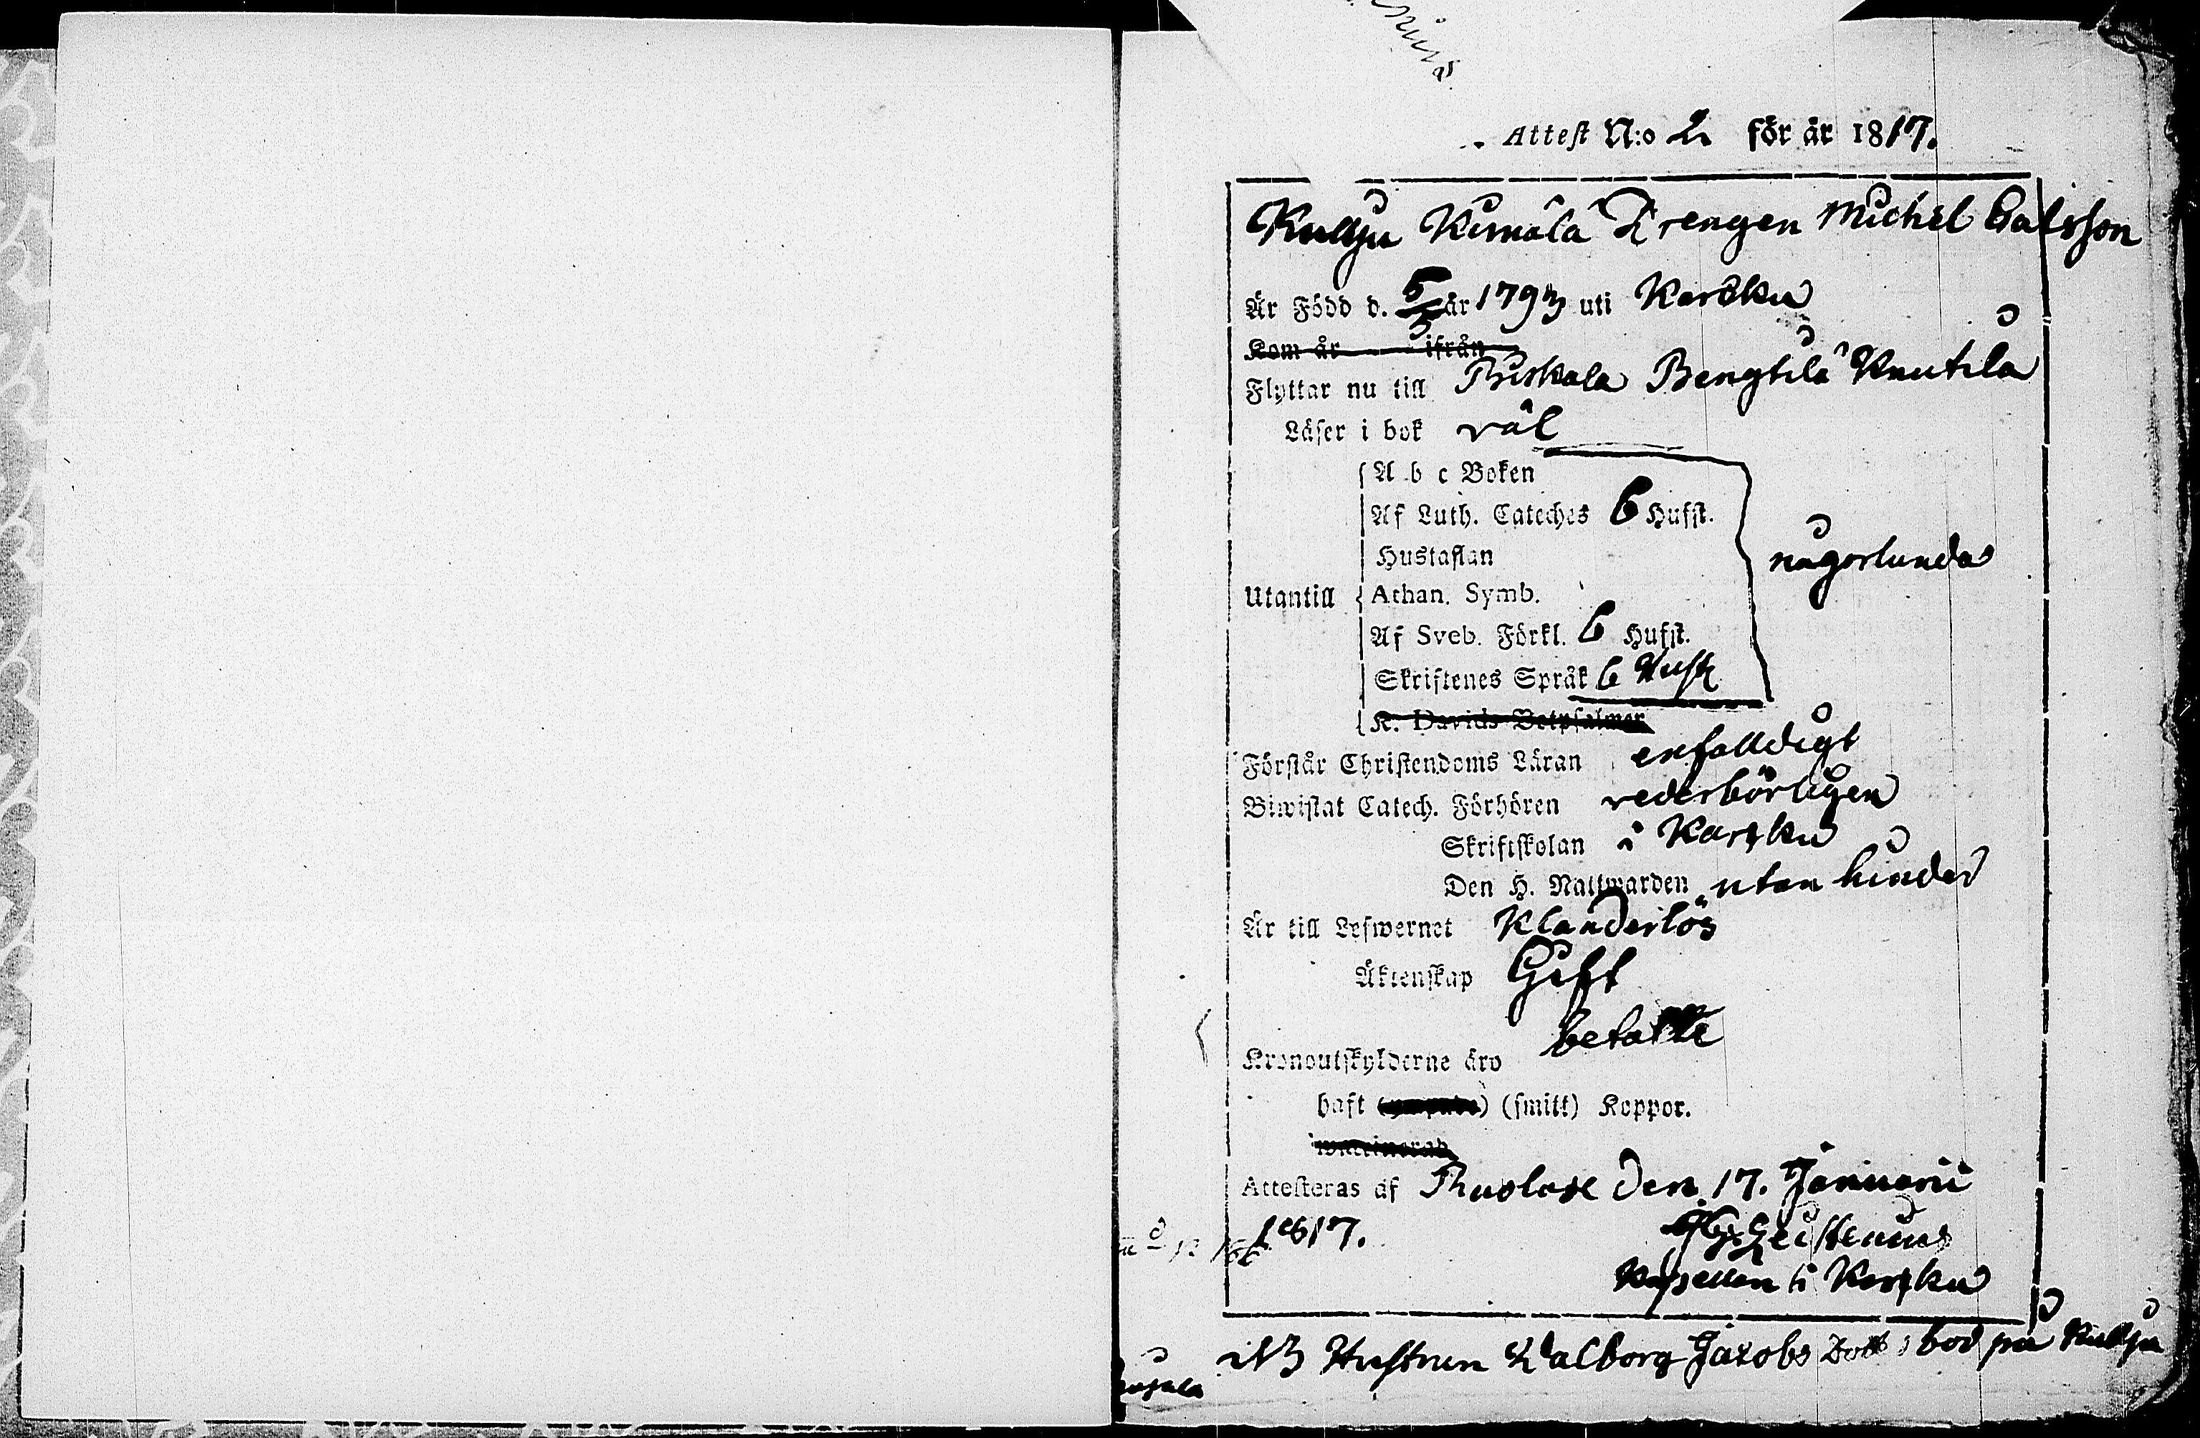 Attest N:o 2 för år 1817.
Kullju Kimala Drengen Michel
Är Född d. 5/3 år 1793 uti Karsku
Kom år ifrån
Flyttar nu till Piiskala Bengtila Knutila
Läser i bok väl
A b c Boken
Af Luth. Cateches 6 Hufst.
Hustaflan
någorlunda
Utantill
Athan. Symb.
Af Sveb. Förkl. 6 Hufst.
Skriftenes Språk 6 Hufst
K. Davids Botpsalmer
Förstår Christendoms Läran enfalldigt
Biwistat Catech. Förhören vederbörligen
Skriftskolan i Karsku
Den H. Nattwarden utan hinder
Är till Lefwernet Klanderlös
Äktenskap Gift
Kronoutskylderne äro betalte
haft (smitt) Koppor.
Attesteras af den 17. Januarii
1817.
Kapellan i Karsku
NB Hustrun Walborg Jacobs Dott: bod på Kullju